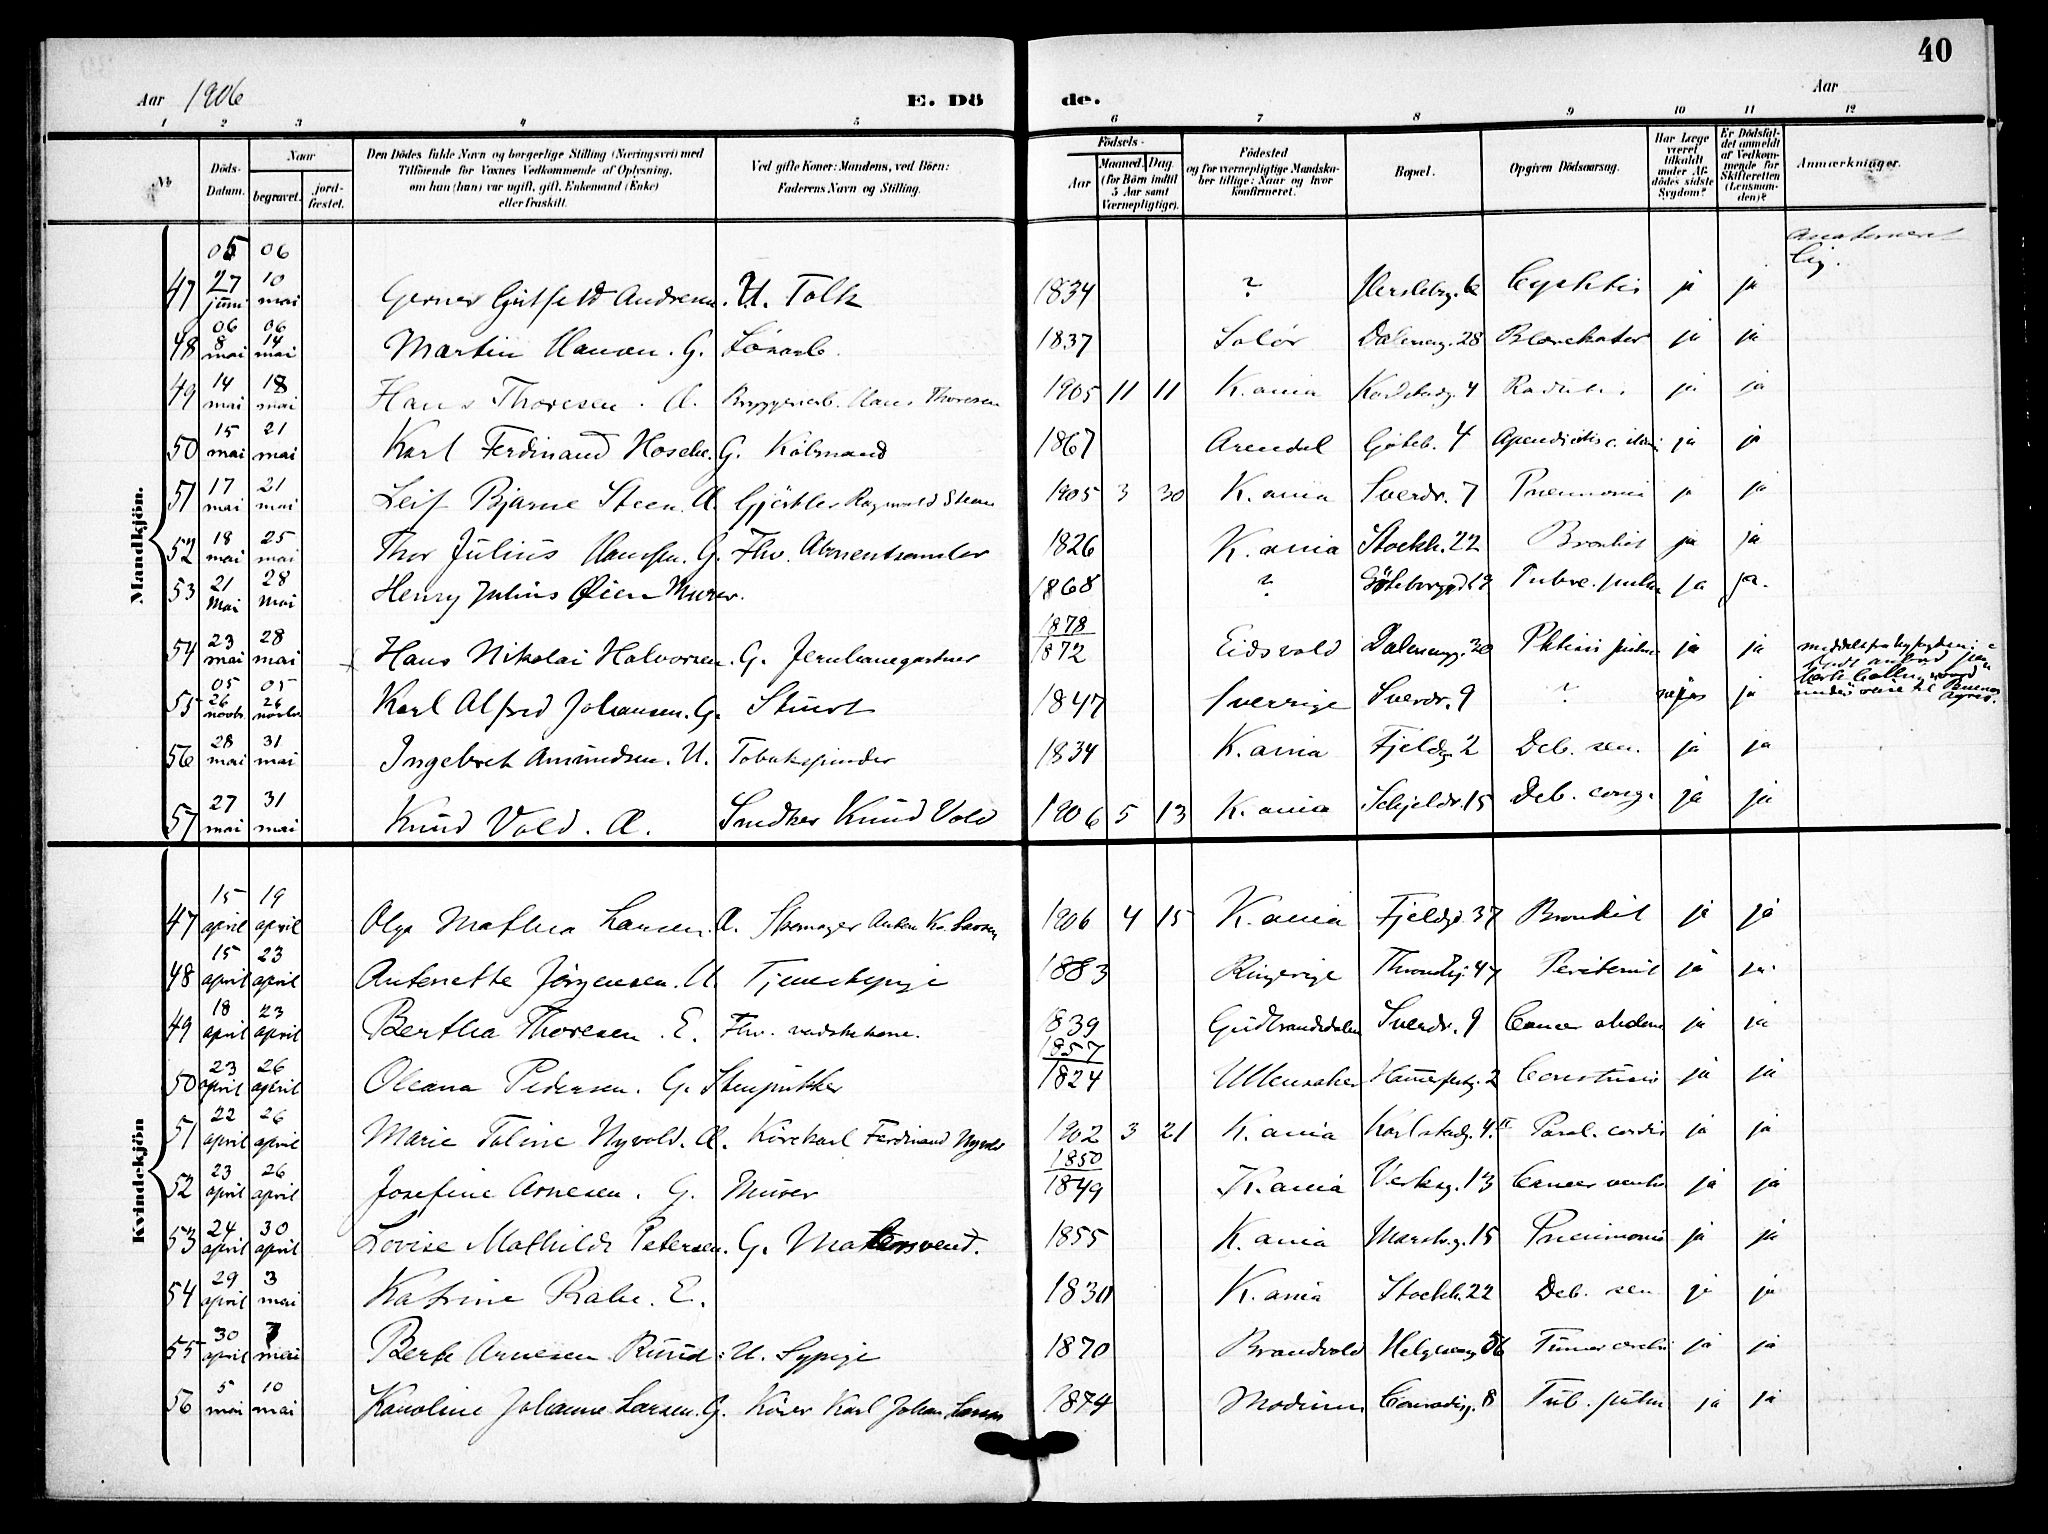 40
Aar 1906 E. Dö de. Aar
1 2 3 4 5 6 7 8 9 10 11 12
No Döds-Datum. Naar begravet. jord-fæstet. Den Dödes fulde Navn og borgerlige Stilling (Næringsvei) med Tilföiende for Voxnes Vedkommende af Oplysning, om han (hun) var ugift, gift, Enkemand (Enke) eller fraskilt. Ved gifte Koner: Mandens, ved Börn: Faderens Navn og Stilling. Födsels- Aar Maaned. Dag. (for Börn indtil 5 Aar samt Værnepligtige). Födested og for værnepligtige Mandska-ber tillige: Naar og hvor konfirmeret. Bopæl. Opgiven Dödsaarsag. Har Læge været tilkaldt under Af-dödes sidste Sygdom? Er Dödsfal-det anmeldt af Vedkom-mende for Skifteretten (Lensman-den)? Anmærkninger.
Mandkjön.
05 06
47 27 juni 10 mai Gerner Gütfeld Andresen. U. Tolk 1834 ? Herslebg. 6 ja ja
48 06 8 mai 06 14 mai Martin Hansen. G. Lönarb. 1837 Solör Dalensg. 28 Blærekatar ja ja
49 14 mai 18 mai Hans Thoresen. Æ. Bryggeriarb. Hans Thoresen 1905 11 11 K.ania Karlstadg. 4 ja ja
50 15 mai 21 mai Karl Ferdinand G. Köbmand 1867 Arendal Göteb. 4 ja ja
51 17 mai 21 mai Leif Bjarne Steen. Æ. Gjörtler Ragnvald Steen 1905 3 30 K.ania Sverdr. 7 Pneumonia ja ja
52 18 mai 25 mai Thor Julius Hansen. G. Fhv. 1826 K.ania Stockh. 22 Bronkit ja ja
53 21 Mai 28 Mai Henry Julius Øien Murer. 1868 ? Göteborggd 19 ja ja.
54 23 mai 28 mai Hans Nikolai Halvorsen. G. Jernbanegartner 1878 1872 Eidsvold Dalensgg. 30 Phtisis pulm ja ja
55 05 26 novbr. 05 26 novbr. Karl Alfred Johansen. G. Stuert 1847 Sverrige Sverdr. 9 ? ja
56 28 mai 31 mai Ingebret Amundsen. U. Tobakspinder 1834 K.ania Fjeldg. 2 Deb. sen. ja ja
57 27 mai 31 mai Knud Vold. Æ. Snedker Knud Vold 1906 5 13 K.ania Schjeldr. 15 Deb. cong. ja ja
Kvindekjön
47 15 april 19 april Olga Mathea Larsen. Æ. 1906 4 15 K.ania Fjeldg. 37 Bronkit ja ja
48 15 april 23 april Antonette Jörgensen. U. Tjenestepige 1883 Ringerige Throndhj. 47 Peritonit ja ja.
49 18 april 23 april Bertha Thoresen. E. Fhv. vaskekone. 1839 Gudbrandsdalen Sverdr. 9 Cancer abdom ja ja
50 23 april 26 april Oleana Pedersen. G. Stenpukker 1857 1824 Ullensaker Hammerfestg. 2 ja ja
51 22 april 26 april Marie Toline Nyvold. Æ. Körekarl Ferdinand Nyvold 1902 3 21 K.ania Karlstadg. 4. II Paral. cordis ja ja
52 23 april 26 april Josefine Arnesen. G. Murer 1850 1849 K.ania Verksg. 13 Cancer ventr. ja ja
53 24 april 30 april Lovise Mathilde Petersen. G. Malersvend. 1855 K.ania 15 Pneumonia ja ja
54 29 april 3 mai Katrine Rabe. E. 1830 K.ania Stockh. 22 Deb. sen ja ja
55 30 april 7 mai Berte Arnesen Ruud. U. Sypige 1870 Brandvold Helgesensg 56 Tumor cerebri ja ja
56 5 mai 10 mai Karoline Johanne Larsen. G. Kören Karl Johan Larsen 1874 Modum Conradisg. 8 Tub. pulm ja ja